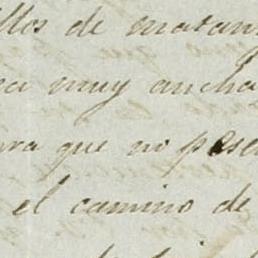 llos de matan
ea muy ancha
ra que no pose
el camino de